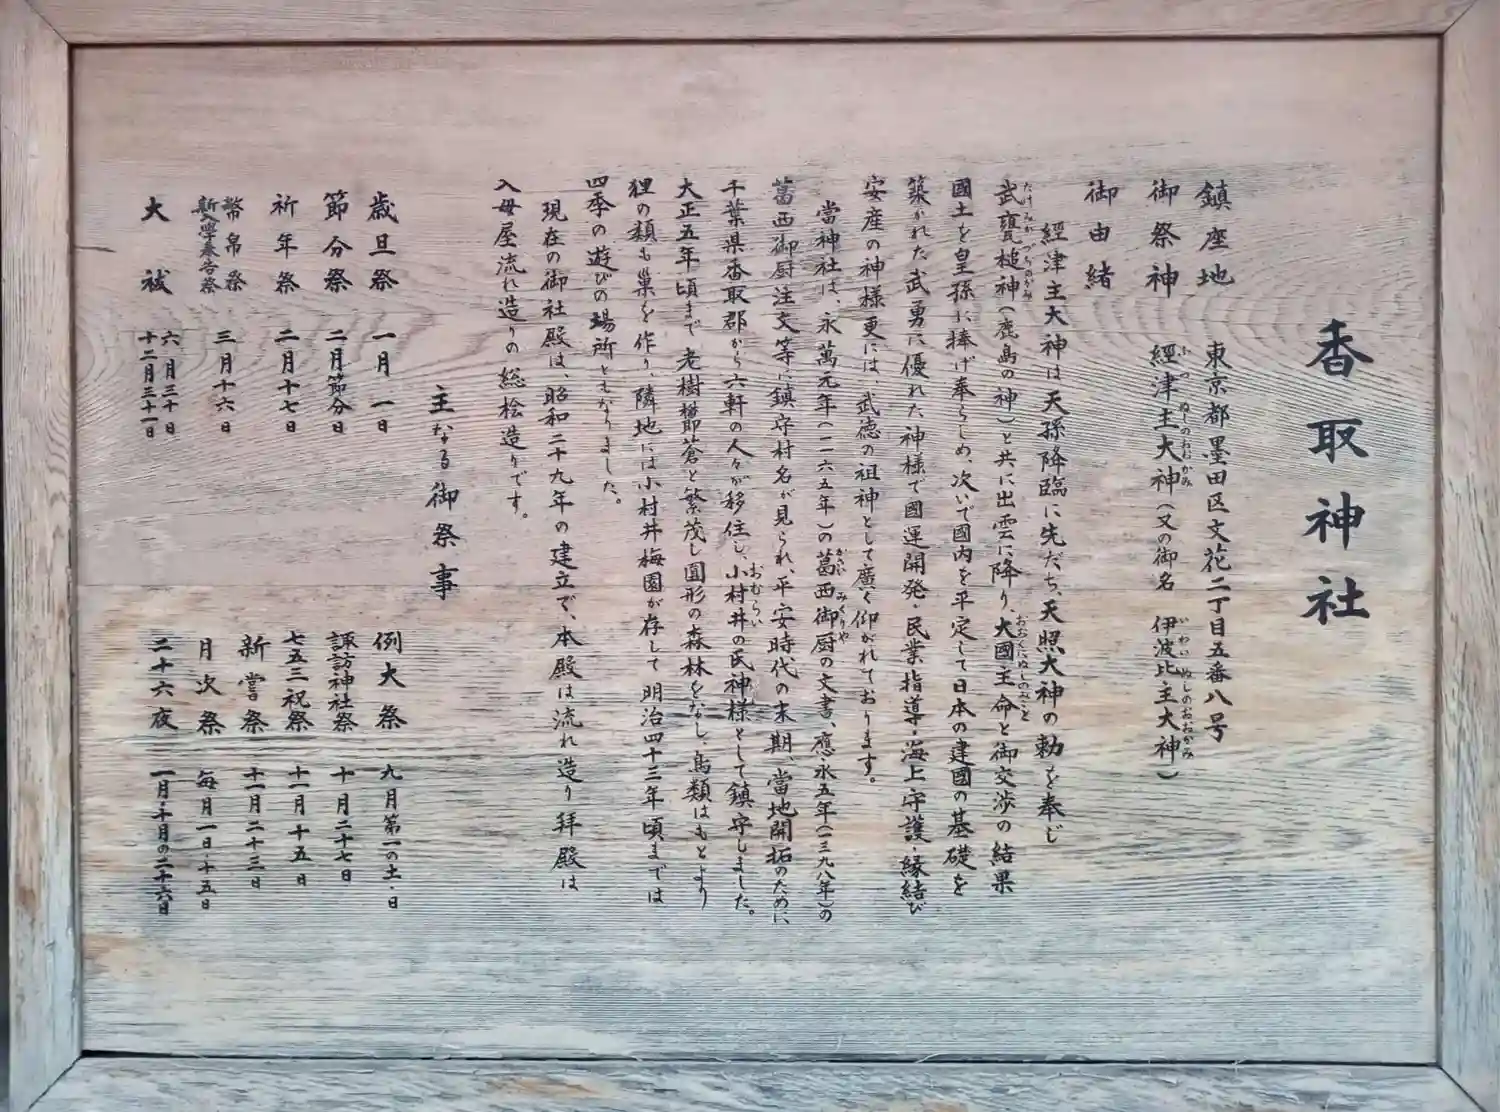 香取神社
鎮座地　東京都墨田区文花二丁目五番八号
御祭神　經津主大神（又の御名　伊波比主大神）
御由緒
經津主大神は天孫降臨に先だち、天照大神の勅を奉じ
武甕槌神（鹿島の神）と共に出雲に降り、大國主命と御交渉の結果
國土を皇孫に捧げ奉らしめ、次いで國内を平定して日本の建國の基礎を
築かれた武勇に優れた神様で國運開発・民業指導・海上守護・縁結び
安産の神様更には、武徳の祖神として廣く仰がれております。
當神社は、永萬元年（一一六五年）の葛西御厨の文書、應永五年（一三九八年）の
葛西御厨注文等に鎮守村名が見られ、平安時代の末期、當地開拓のために
千葉県香取郡から六軒の人々が移住し、小村井の氏神様として鎮守しました。
大正五年頃まで老樹欝蒼と繁茂し圓形の森林をなし、鳥類はもとより
狸の類も巣を作り、隣地には小村井梅園が存して明治四十三年頃までは
四季の遊びの場所ともなりました。
現在の御社殿は、昭和二十九年の建立で、本殿は流れ造り拝殿は
入母屋流れ造りの総桧造りです。
主なる御祭事
歳旦祭　一月一日
節分祭　二月節分日
祈年祭　二月十七日
幣帛祭
三月十六日
大祓　六月三十日
十二月三十一日
例大祭　九月第一の土・日
諏訪神社祭　十月二十七日
七五三祝祭　十一月十五日
新嘗祭　十一月二十三日
月次祭　毎月一日・十五日
二十六夜　一月・十月の二十六日